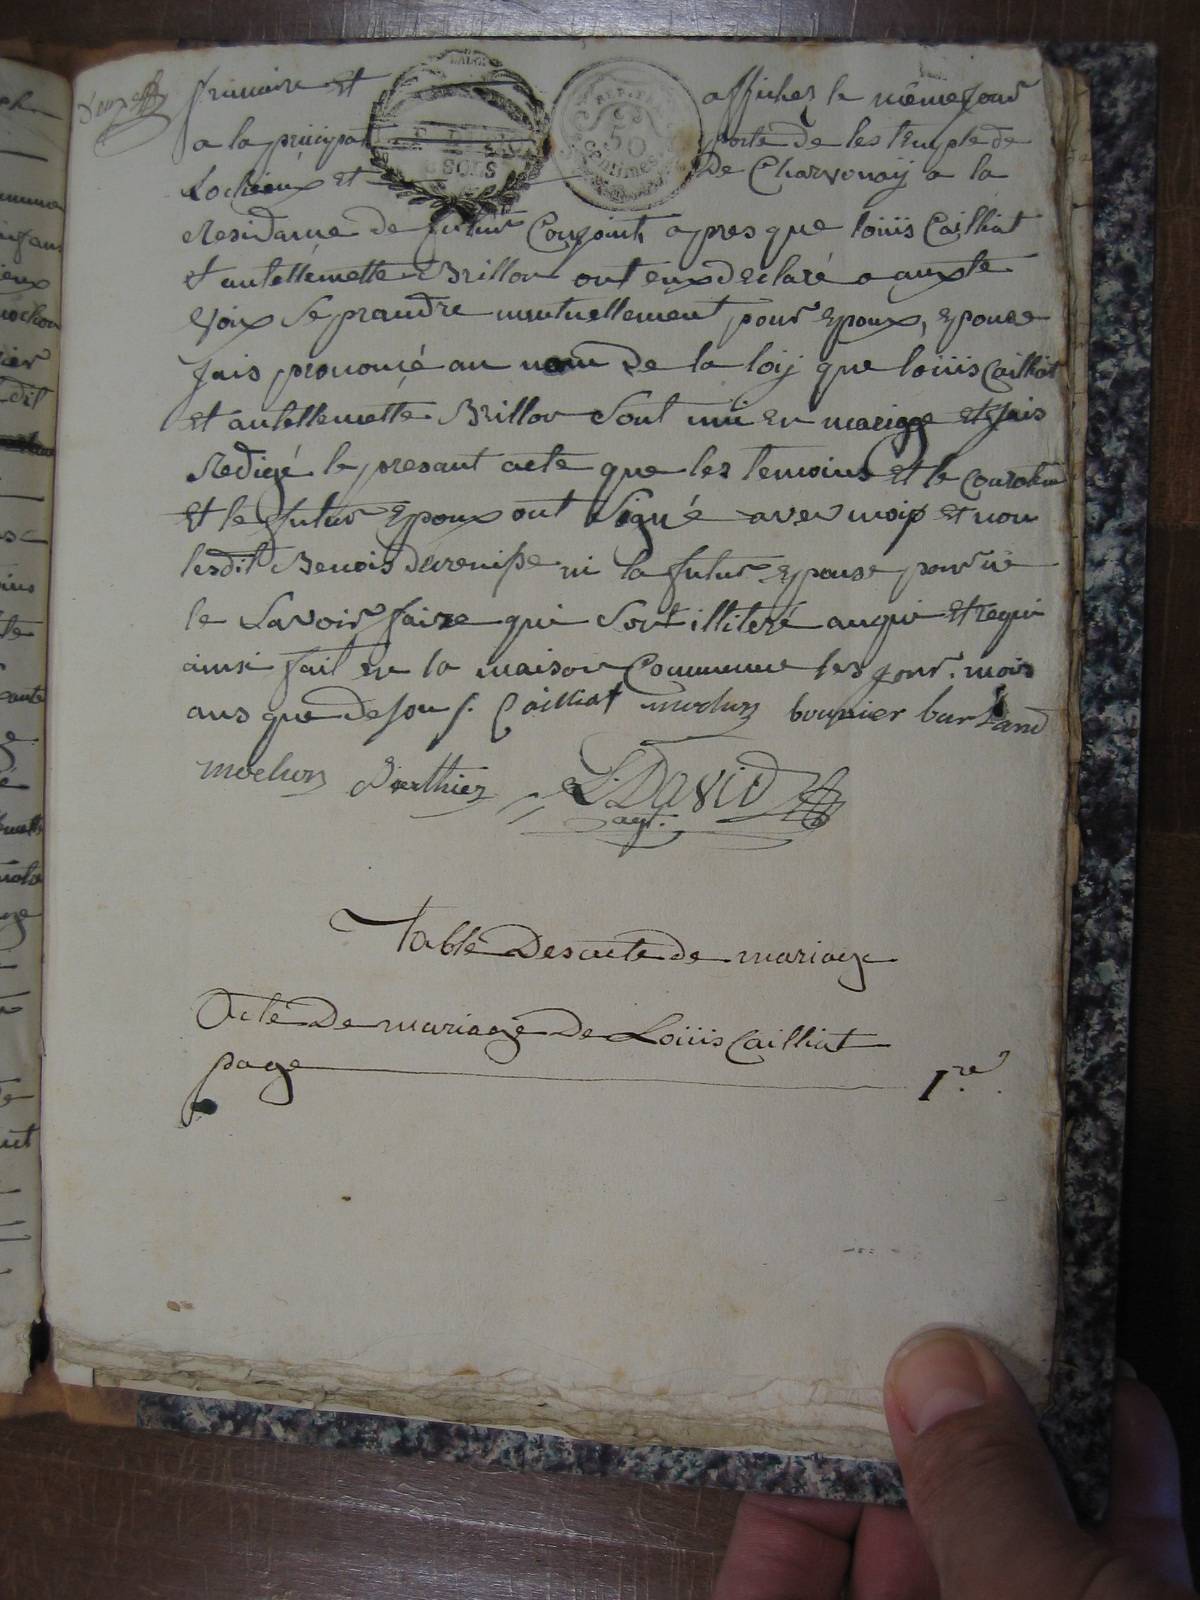 frimaire et affichez le même jour
a la principal porte de les temple de
Lochieux et De Charvonay a la
Residance de futur Conjoint apres que loüis Cailliat
et antellemette Brillon ont eux declaré a aute
voix Se prandre mutuellement pour Epoux, Epouse
Jais prononcé au nom de la loÿ que loüis Cailliat
et antellemette Brillon Sont uni en mariage et Jais
Redigé le presant acte que les temoins et le
et le futur Epoux ont Signé avec mois et non
lesdit Benois ni la futur Epouse pour ne
le Savoir faire qui Sont illiteré
ainsi fait en la maison Commune les jour. mois
ans que desou f. Cailliat mochon bounier burland
mochon Barthier L. David
agt.
Table Des acte de mariage
Acte De mariage De Loüis Cailliat
page 1.re